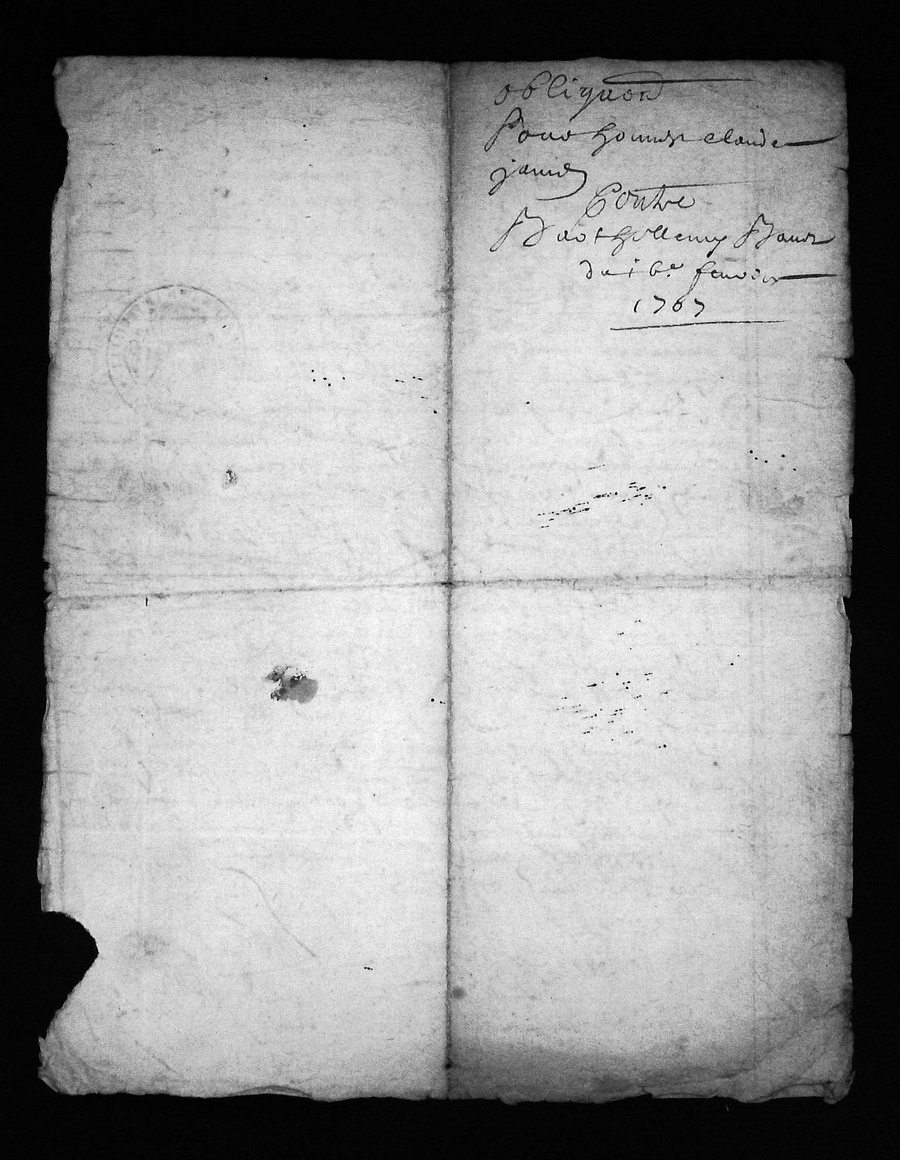 obligaon
Pour honne claude
janin
Contre
Barthellemy Baud
du 16e feuvrier
1707